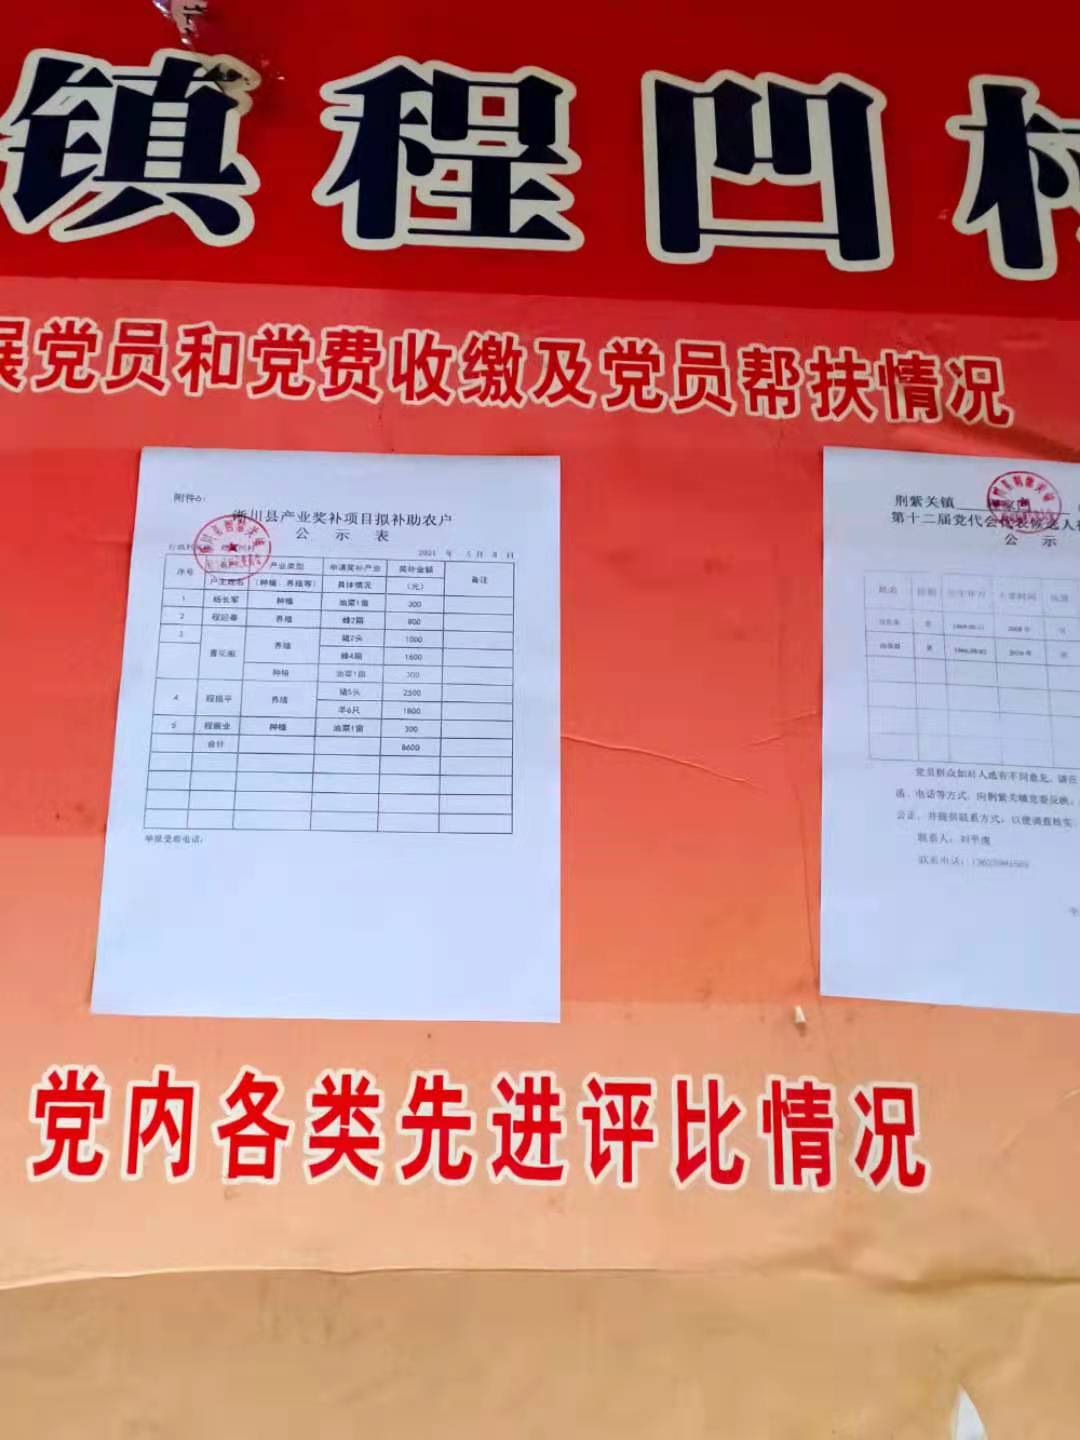 镇程凹村
展党员和党费收缴及党员帮扶情况
附件6：
淅川县产业奖补项目拟补助农户
公 示 表
2021 年 5月8日
序号 户主姓名 产业类型（种植、养殖等） 申请奖补产业具体情况 奖补金额（元） 备注
1 杨长军 种植 油菜1亩 300
2 程迎春 养殖 蜂2箱 800
3 养殖 猪2头 1000
蜂4箱 1600
种植 油菜1亩 300
4 养殖 猪5头 2500
羊6只 1800
5 程振业 种植 油菜1亩 300
合计 8600
举报受理电话：
荆紫关镇
第十二届党代会代表候选人
公 示
姓名 性别 出生年月 入党时间
党员群众如对人选有不同意见，请在
函、电话等方式，向荆紫关镇党委反映。
公正，并提供联系方式，以便调查核实。
联系人：
联系电话：
党内各类先进评比情况